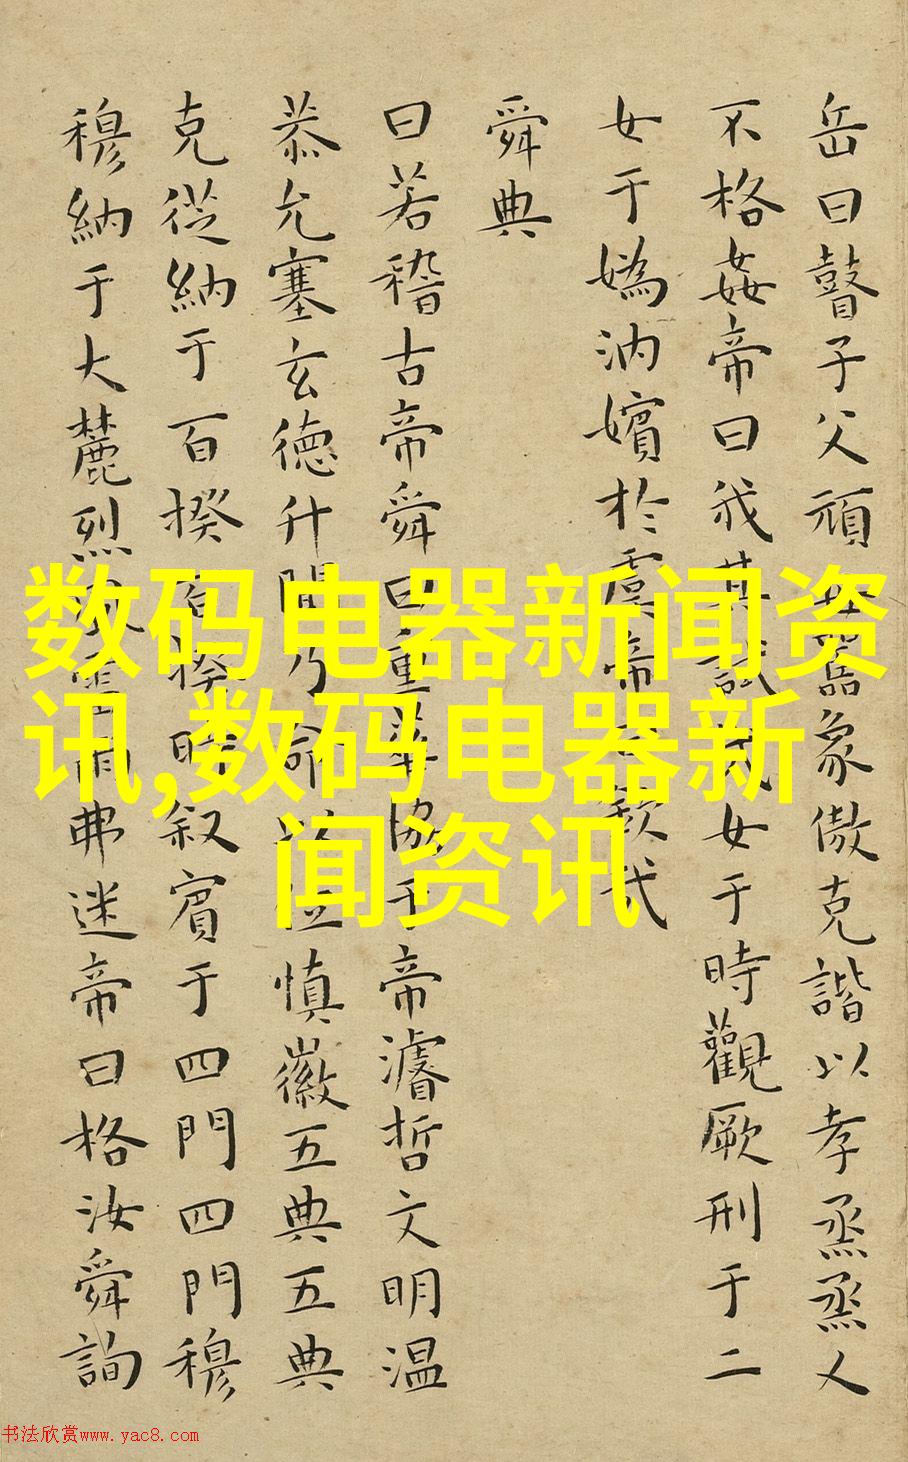 岳曰瞽子父頑母嚚象傲克諧以孝烝烝乂
不格姦帝曰我其試哉女于時觀厥刑于二
女于媯汭嬪於虞帝曰欽哉
舜典
曰若稽古帝舜曰重華協于帝濬哲文明温
恭允塞玄德升聞乃命以位慎徽五典五典
克從納于百揆百揆時叙賓于四門四門穆
穆納于大麓烈風雷雨弗迷帝曰格汝舜詢
数码电器新闻资
讯,数码电器新
闻资讯
书法欣赏www.yac8.com